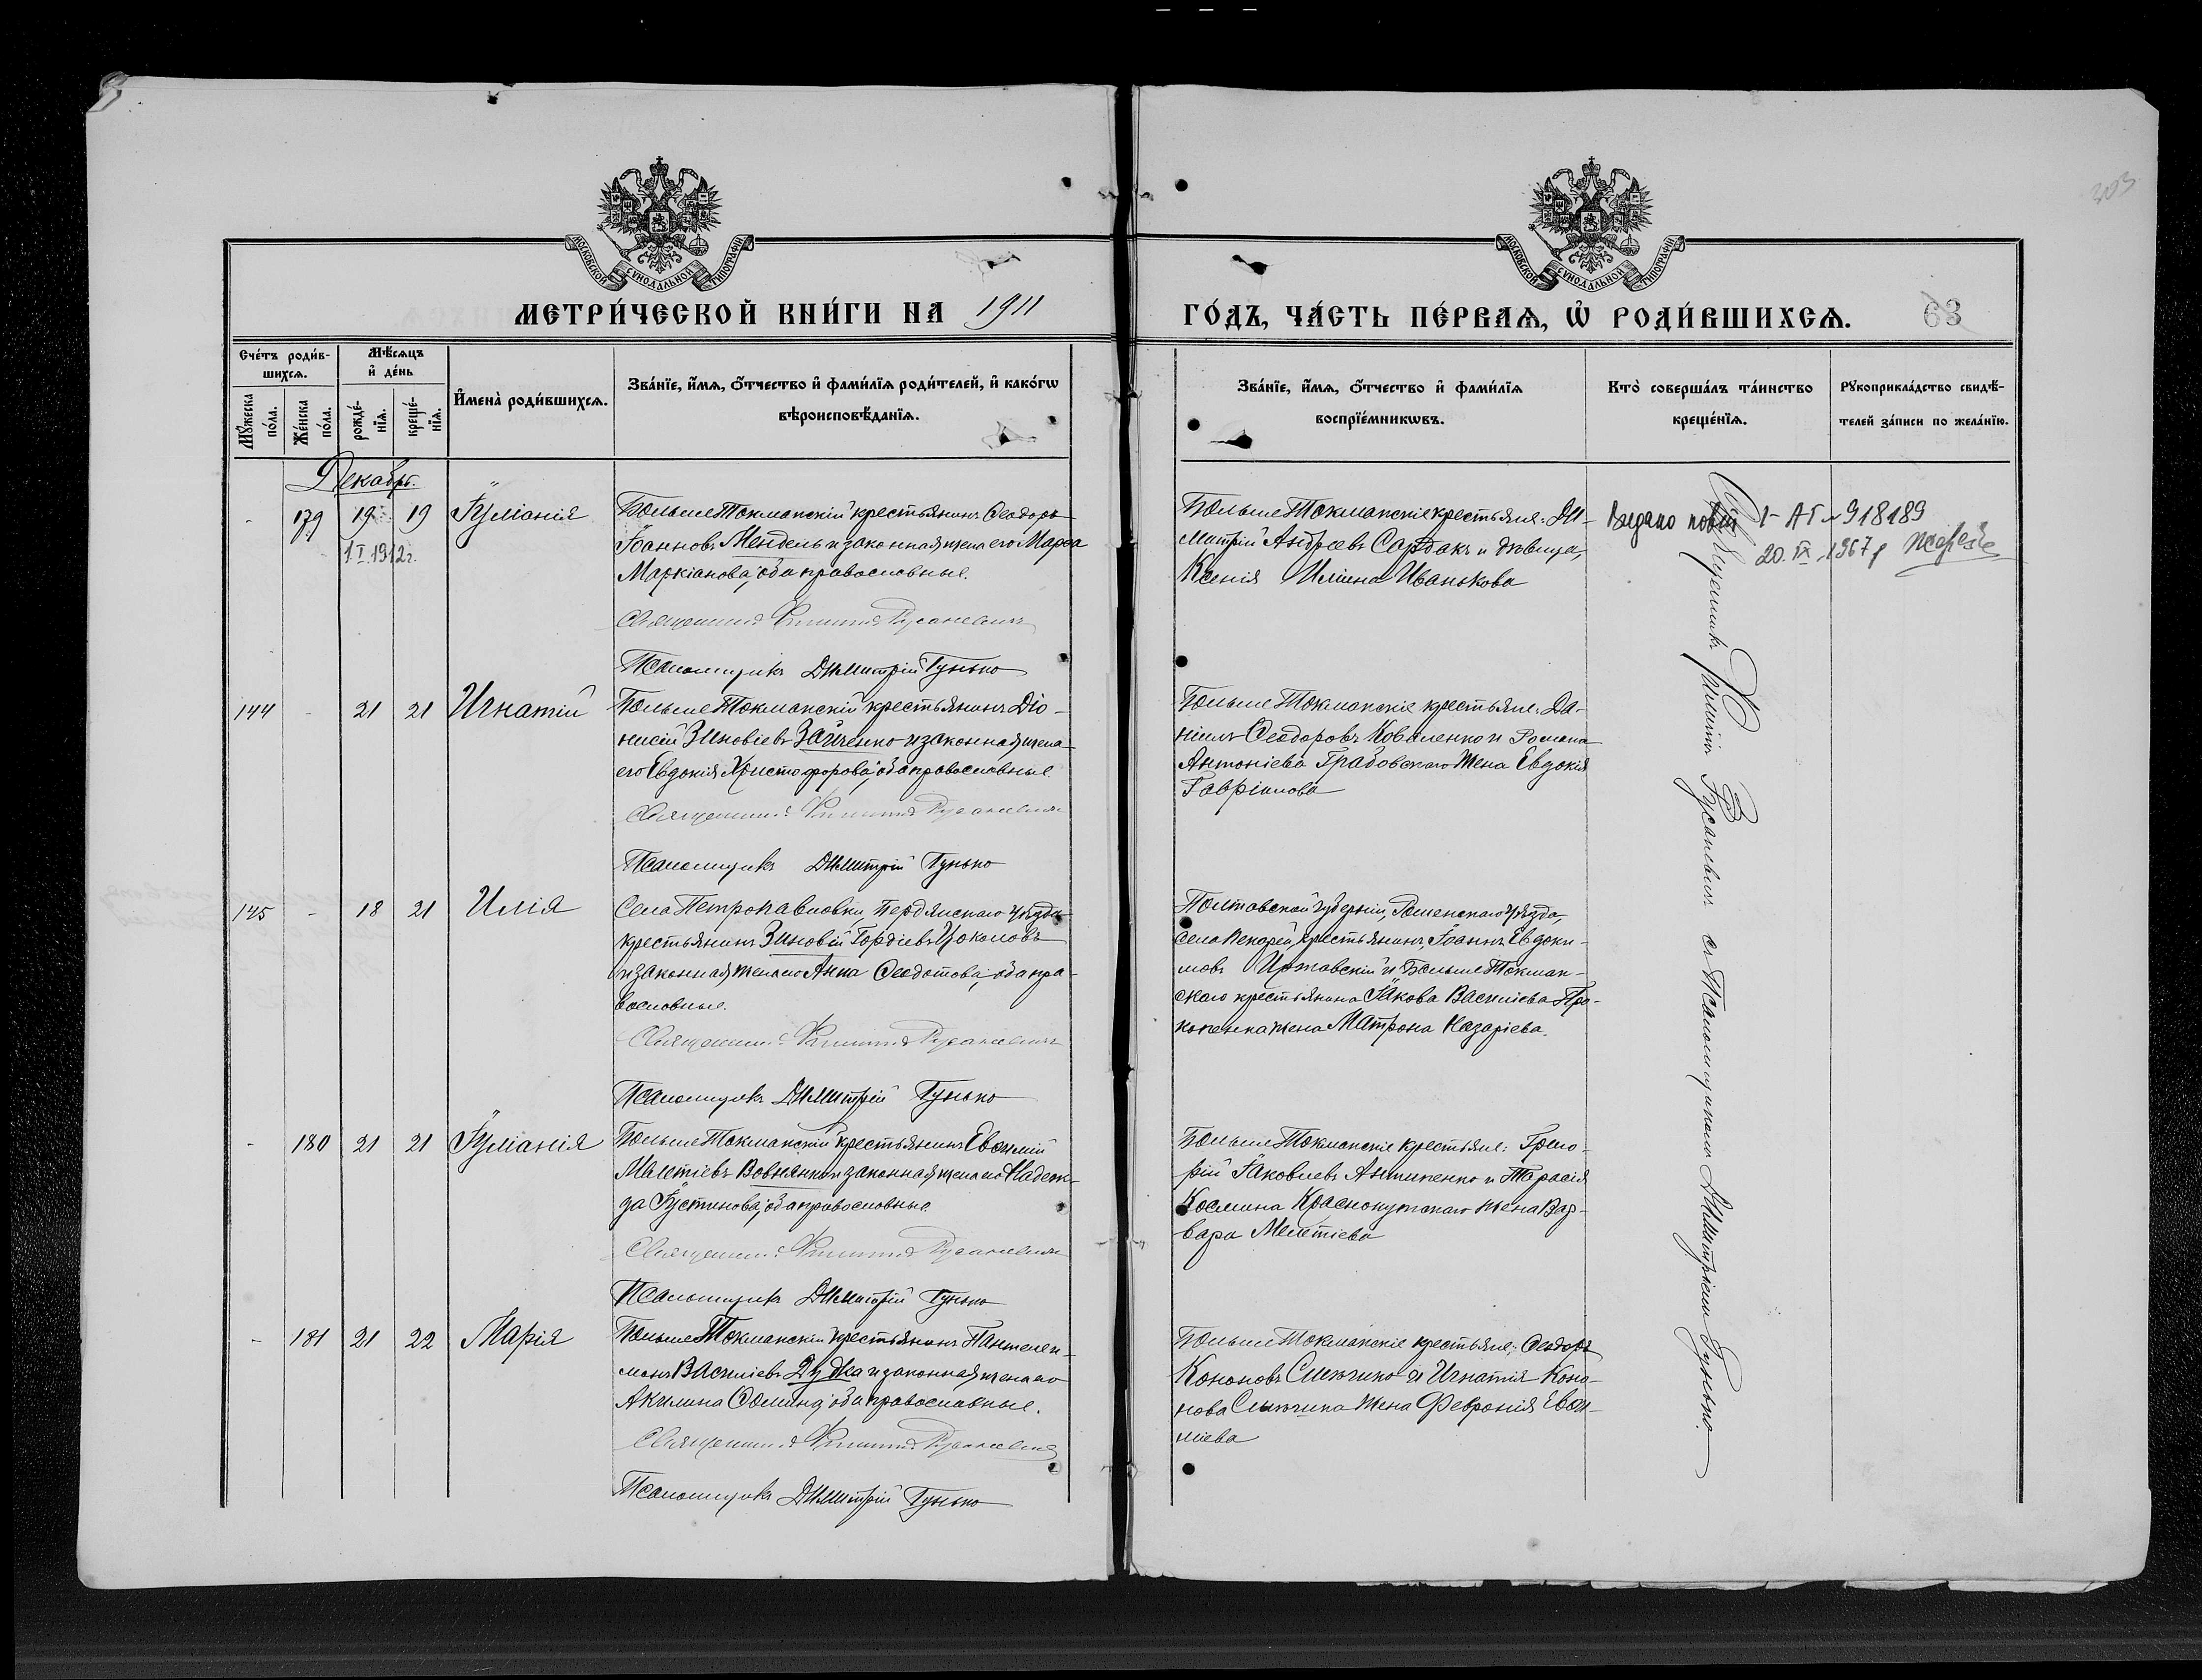 303
МОСКОВСКОЙ СѴНОДАЛЬНОЙ ТИПОГРАФІИ
МОСКОВСКОЙ СѴНОДАЛЬНОЙ ТИПОГРАФІИ
МЕТРИ́ЧЕСКОЙ КНИ́ГИ НА 1911
ГО́ДЪ, ЧА́СТЬ ПЕ́РВАѦ, Ѡ҆ РОДИ́ВШИХСѦ.
63
Сче́тъ роди́в-
шихсѧ.
Мѣ́сѧцъ
и҆ де́нь
Мꙋ́жеска
по́ла.
Же́нска
по́ла.
рожде́-
нїѧ.
креще́-
нїѧ.
И҆мена̀ роди́вшихсѧ.
Зва́нїе, и҆́мѧ, ѻ҆́тчество и҆ фами́лїѧ роди́телей, и҆ како́гѡ
вѣроисповѣ́данїѧ.
Зва́нїе, и҆́мѧ, ѻ҆́тчество и҆ фами́лїѧ
воспрїе́мникѡвъ.
Кто̀ соверша́лъ та́инство
креще́нїѧ.
Рꙋкоприкла́дство свидѣ́-
телей за́писи по жела́нїю.
Декабрь.
- 179 19 19 Іуліанія
1 I.1912г.
Больше Токмакскій крестьянинъ Ѳеодоръ
Іоанновъ Мендель и законная жена его Марѳа
Маркіанова, оба православные.
Священникъ Филиппъ Русаневичъ
Псаломщикъ Димитрій Гунько
Больше Токмакскіе крестьяне: Ди-
митрій Андреевъ Сардакъ и дѣвица,
Ксенія Иліина Иванькова
Видано повт. I-АГ №918189
20.IX.1967р
144 - 21 21 Игнатій
Больше Токмакскій крестьянинъ Діо-
нисій Зиновіевъ Зайченко и законная жена
его Евдокія Христофорова, оба православные
Священникъ Филиппъ Русаневичъ
Псаломщикъ Димитрій Гунько
Больше Токмакскіе крестьяне: Да-
ніилъ Ѳеодоровъ Коваленко и Романа
Антоніева Грабовскаго жена Евдокія
Гавріилова
145 - 18 21 Илія
Села Петропавловки, Бердянскаго уѣзда
крестьянинъ Зиновій Гордіевъ Цоколовъ
и законная жена его Анна Ѳеодотова, оба пра-
вославные.
Священникъ Филиппъ Русаневичъ
Псаломщикъ Димитрій Гунько
Полтавской губерніи, Роменскаго уѣзда,
села Пекарей, крестьянинъ, Іоаннъ Евдоки-
мовъ Иржавскій и Больше Токмак-
скаго крестьянина Іакова Василіева Про-
копенка жена Матрона Назаріева.
- 180 21 21 Іуліанія
Больше Токмакскій крестьянинъ Евѳимій
Мелетіевъ Вовнянко и законная жена его Надеж-
да Іустинова, оба православные
Священникъ Филиппъ Русаневичъ
Псаломщикъ Димитрій Гунько
Больше Токмакскіе крестьяне: Григо-
рій Іаковлевъ Антипенко и Тарасія
Космина Краснокутскаго жена Вар-
вара Мелетіева
- 181 21 22 Марія
Больше Токмакскій крестьянинъ Пантелеи-
монъ Василіевъ Дудка и законная жена его
Акилина Ѳомина, оба православные.
Священникъ Филиппъ Русаневичъ
Псаломщикъ Димитрій Гунько
Больше Токмакскіе крестьяне: Ѳеодоръ
Кононовъ и Игнатія Коно-
нова жена Февронія Евѳи-
міева
Священникъ Филиппъ Русаневичъ съ Псаломщикомъ Димитріемъ Гунько.